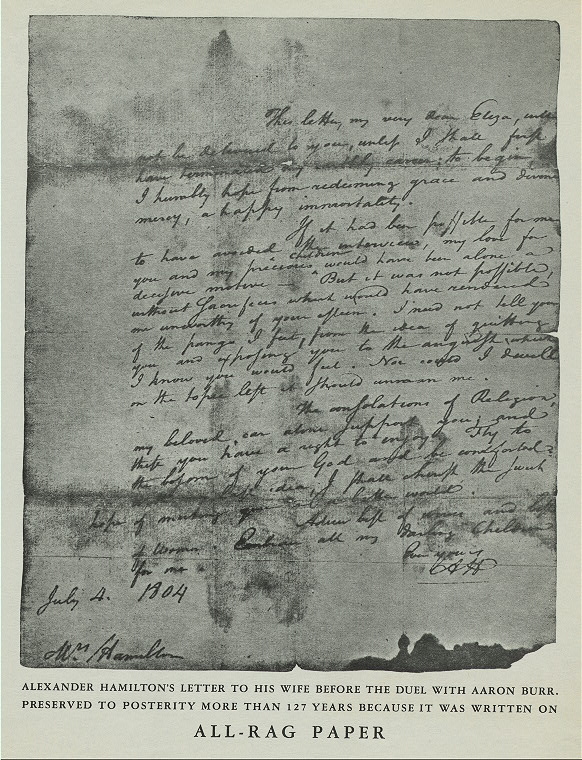 This letter, my very dear Eliza, will
not be delivered to you, unless I shall first
have terminated my earthly career; to begin,
I humbly hope from redeeming grace and divine
mercy, a happy immortality.
If it had been possible for me
to have avoided the interview, my love for
you and my precious children would have been alone a
decisive motive. But it was not possible,
without sacrifices which would have rendered
me unworthy of your esteem. I need not tell you
of the pangs I feel, from the idea of quitting
you and exposing you to the anguish which
I know you would feel. Nor could I dwell
on the topic lest it should unman me.
The consolations of Religion,
my beloved, can alone support you; and
these you have a right to enjoy. Fly to
the bosom of your God and be comforted.
With my last idea; I shall cherish the sweet
hope of meeting you in a better world.
Adieu best of wives and best
of Women. Embrace all my darling Children
for me.
Ever yours
AH
July 4. 1804
Mrs Hamilton
ALEXANDER HAMILTON'S LETTER TO HIS WIFE BEFORE THE DUEL WITH AARON BURR.
PRESERVED TO POSTERITY MORE THAN 127 YEARS BECAUSE IT WAS WRITTEN ON
ALL-RAG PAPER